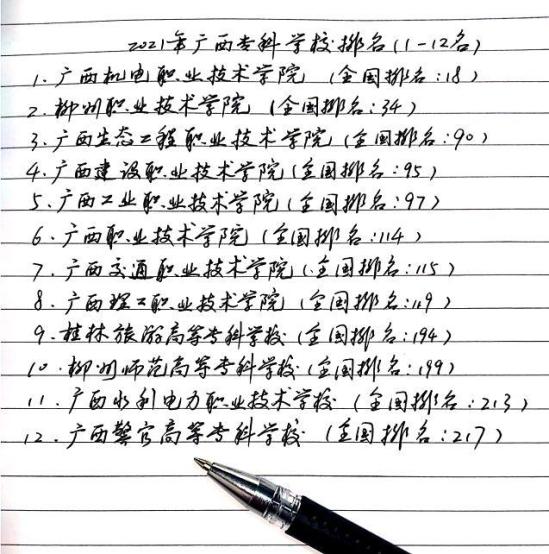 2021年广西专科学校排名(1-12名)
1.广西机电职业技术学院(全国排名:18)
2.柳州职业技术学院(全国排名:34)
3.广西生态工程职业技术学院(全国排名:90)
4.广西建设职业技术学院(全国排名:95)
5.广西工业职业技术学院(全国排名:97)
6.广西职业技术学院(全国排名:114)
7.广西交通职业技术学院(全国排名:115)
8.广西理工职业技术学院(全国排名:119)
9.桂林旅游高等专科学校(全国排名:194)
10.柳州师范高等专科学校(全国排名:199)
11.广西水利电力职业技术学校(全国排名:213)
12.广西警官高等专科学校(全国排名:217)